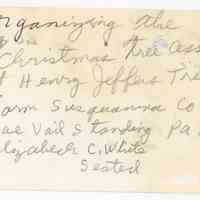 organizing the
Christmas Tree Ass
t Henry Jeffers Tre
arm Susquanna Co
ae Vail Standing Pa
lizabeth C. White
Seated